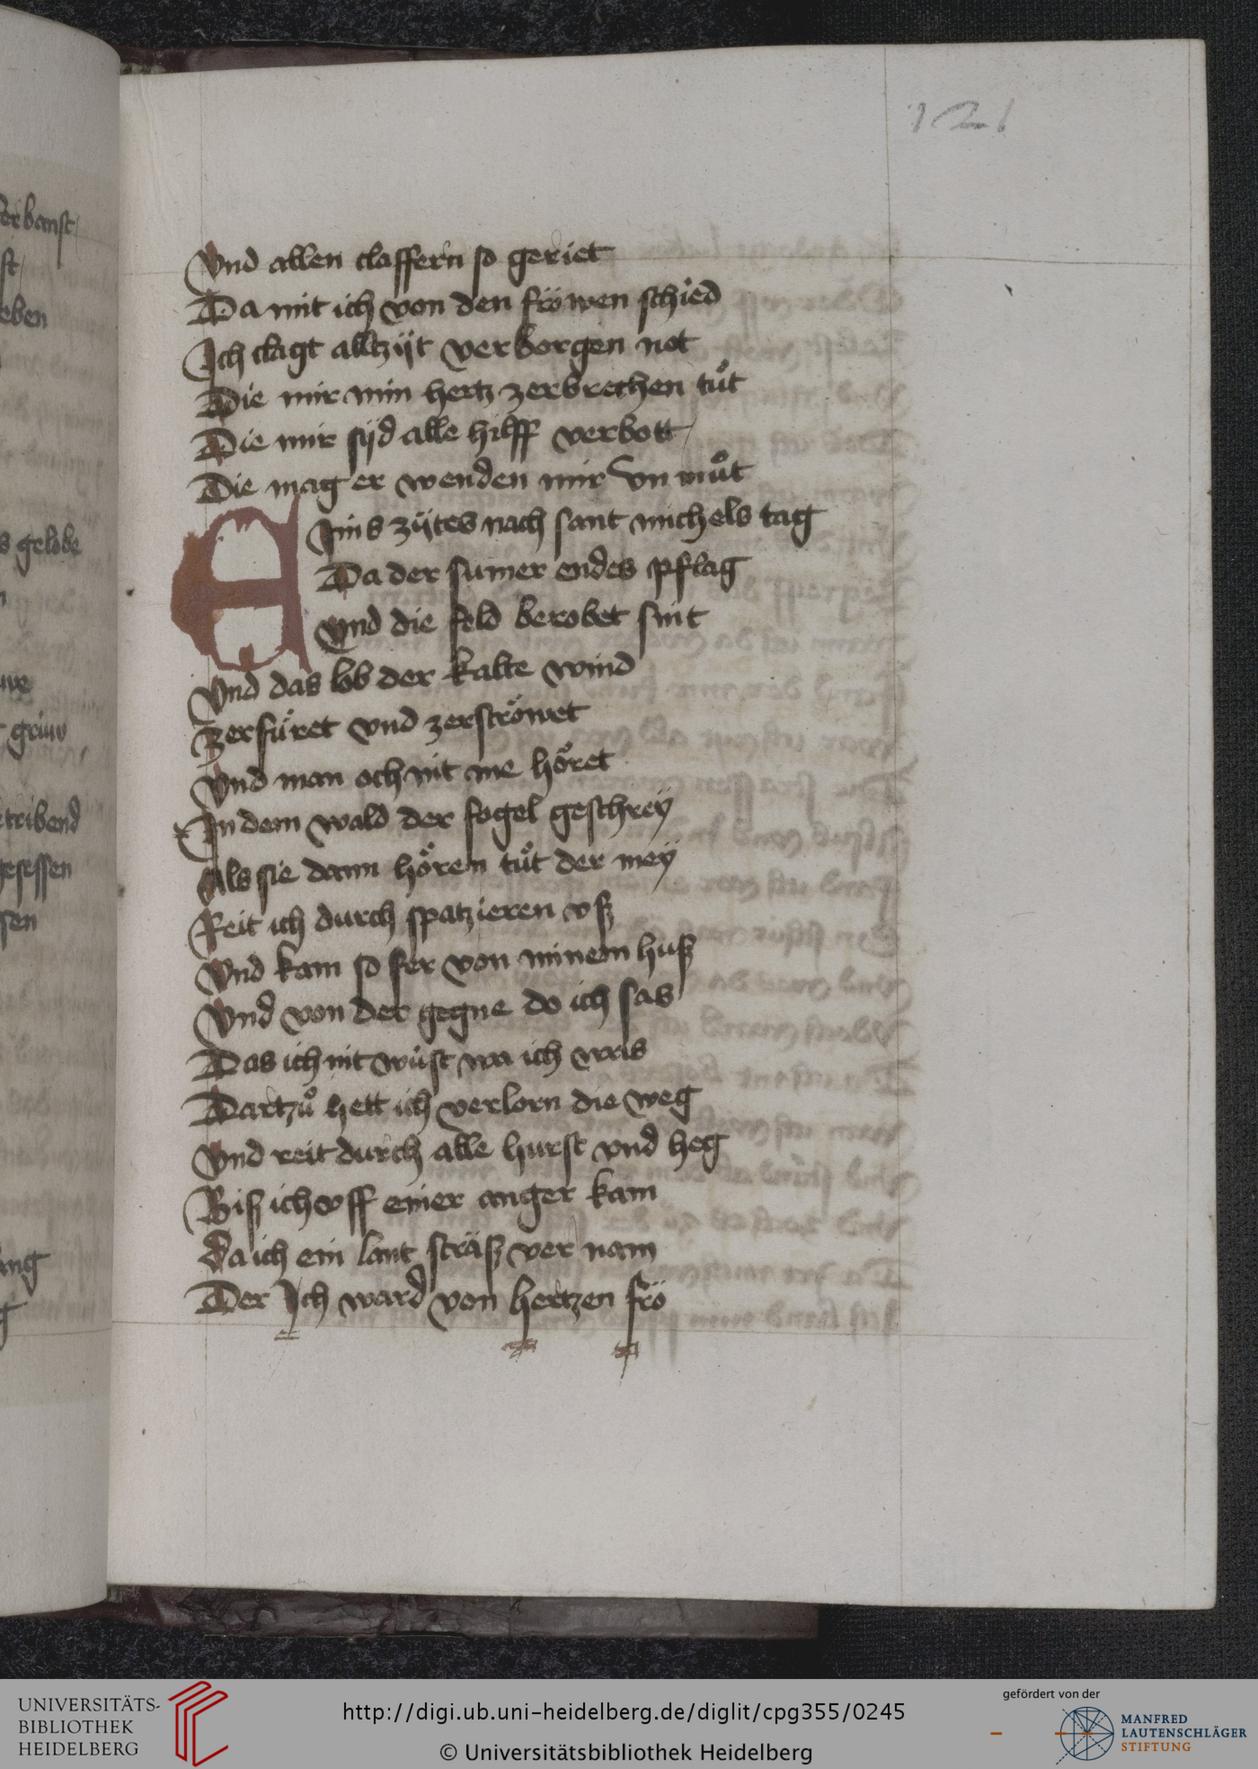 121
Vnd allen claffern so geriet
Da mit ich von den fröwen schied
Ich clagt alltzÿt verborgen not
Die mir min hertz zerbrechen tuͦt
Die mir sÿd alle hilff verbott
Die mag er wenden mir vn muͦt
EIns zÿtes nach sant michels tag
Da der sumer endes pflag
Vnd die feld berobet sint
Vnd das lob der kalte wind
Zerfüret vnd zerströwet
Vnd man och nit me höret
In dem wald der fogel geschreÿ
Als sie dann hören tuͦt der meÿ
Reit ich durch spatzieren vß
Vnd kam so fer von minem huß
Vnd von der gegne do ich sas
Das ich nit wüst wa ich was
Dartzuͦ hett ich verlorn die weg
Vnd reit durch alle hurst vnd heg
Biß ich vff einer anger kam
Da ich ein lant sträß ver nam
Der Ich ward von hertzen frö
erbanst
st
eben
s gelobe
grün
tribend
gesessen
sen
ang
UNIVERSITÄTS-
BIBLIOTHEK
HEIDELBERG
http://digi.ub.uni-heidelberg.de/diglit/cpg355/0245
© Universitätsbibliothek Heidelberg
gefördert von der
MANFRED
LAUTENSCHLÄGER
STIFTUNG